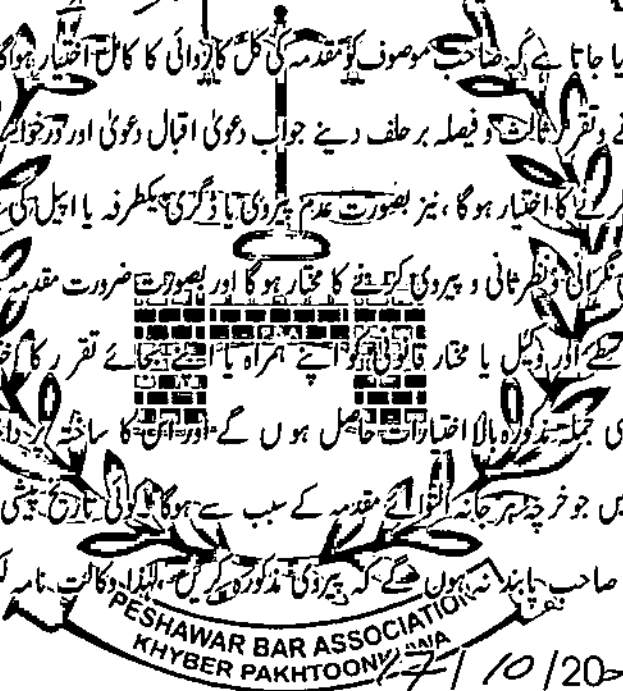 یا جاتا ہے کہ صاحب موصوف کو مقدمہ کی کل کاروائی کا کامل اختیار ہوگا
نے وتقرر ثالث و فیصلہ بر حلف دینے جواب دعویٰ اقبال دعویٰ اور درخواست
کرنے کا اختیار ہوگا ، نیز بصورت عدم پیروی یا ڈگری یکطرفہ یا اپیل کی
نگرانی و نظر ثانی و پیروی کرنے کا مختار ہو گا اور بصورت ضرورت مقدمہ
کے اور وکیل یا مختار قانونی کو اپنے ہمراہ یا اپنے بجائے تقرر کا
ی جملہ مذکورہ بالا اختیارات حاصل ہوں گے اور اس کا ساختہ پر
جو خرچہ ہر جانہ التوائے مقدمہ کے سبب سے ہوگا کوئی تاریخ پیشی
صاحب پابند نہ ہوں گے کہ پیروی مذکورہ کریں، لہٰذا وکالت نامہ
PESHAWAR BAR ASSOCIATION
KHYBER
/10/20